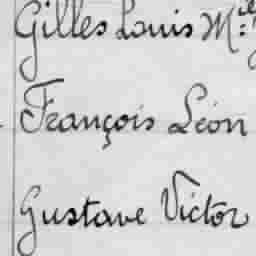 Gilles Louis M.el
François Léon
Gustave Victor